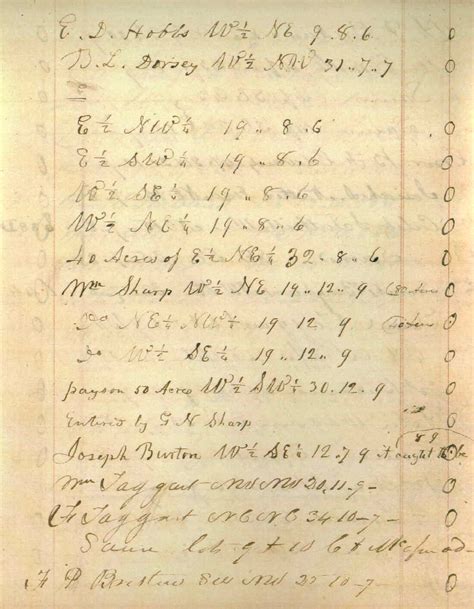 E. D. Hobbs W ½ NE 9.8.6 0
B. L. Dorsey W ½ NW 31..7..7 0
E ½ NW ¼ 19 .. 8 .. 6 0
E ½ SW ¼ 19 .. 8 .. 6 0
W ½ SE ¼ 19 .. 8 .. 6 0
W ½ NE ¼ 19 .. 8 .. 6 0
40 Acres of E ½ NE ¼ 32 .. 8 .. 6 0
Wm Sharp W ½ NE 19 .. 12 .. 9 0
Do NE ¼ NW ¼ 19 12 9 0
Do W ½ SE ¼ 19 .. 12 .. 9 0
payson 50 Acres W ½ SW ¼ 30.12.9 0
Entered by G N Sharp
Joseph Burton W ½ SE ¼ 12.7.9 it
Wm Taggart NW NW 20.11-9- 0
F Taggart NE NE 34-10-7- 0
Same Lots 9 & 10
F P NW 25-10-7- 0